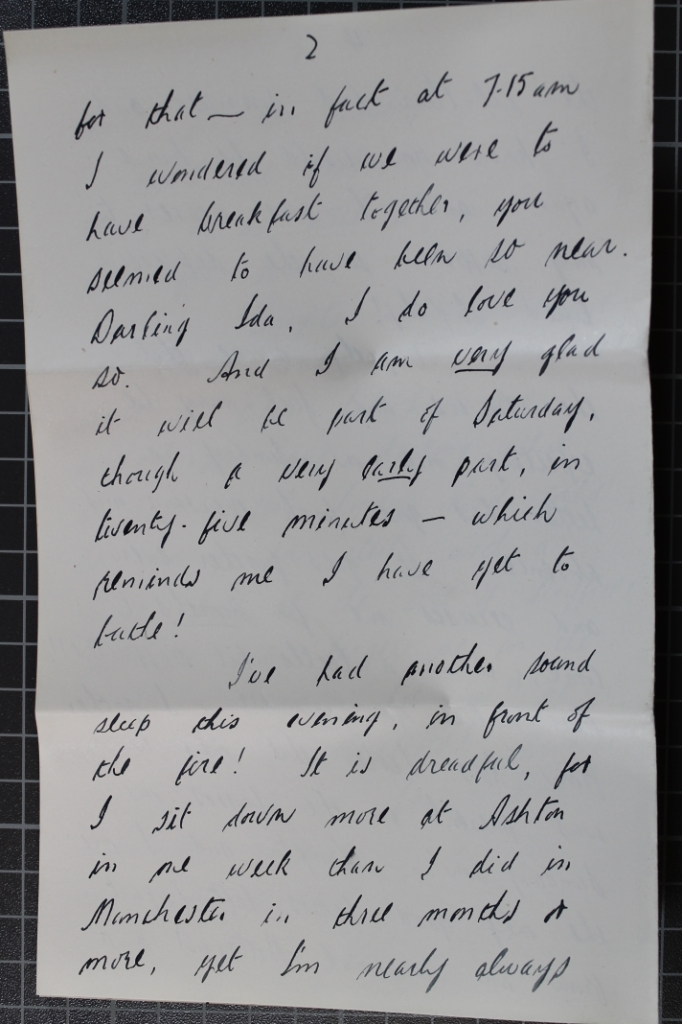 2
for that — in fact at 7.15 am
I wondered if we were to
have breakfast together, you
seemed to have been so near.
Darling Ida, I do love you
so. And I am very glad
it will be part of Saturday,
though a very early part, in
twenty-five minutes — which
reminds me I have yet to
bathe!
I've had another sound
sleep this evening, in front of
the fire! It is dreadful, for
I sit down more at Ashton
in one week than I did in
Manchester in three months or
more, yet I'm nearly always